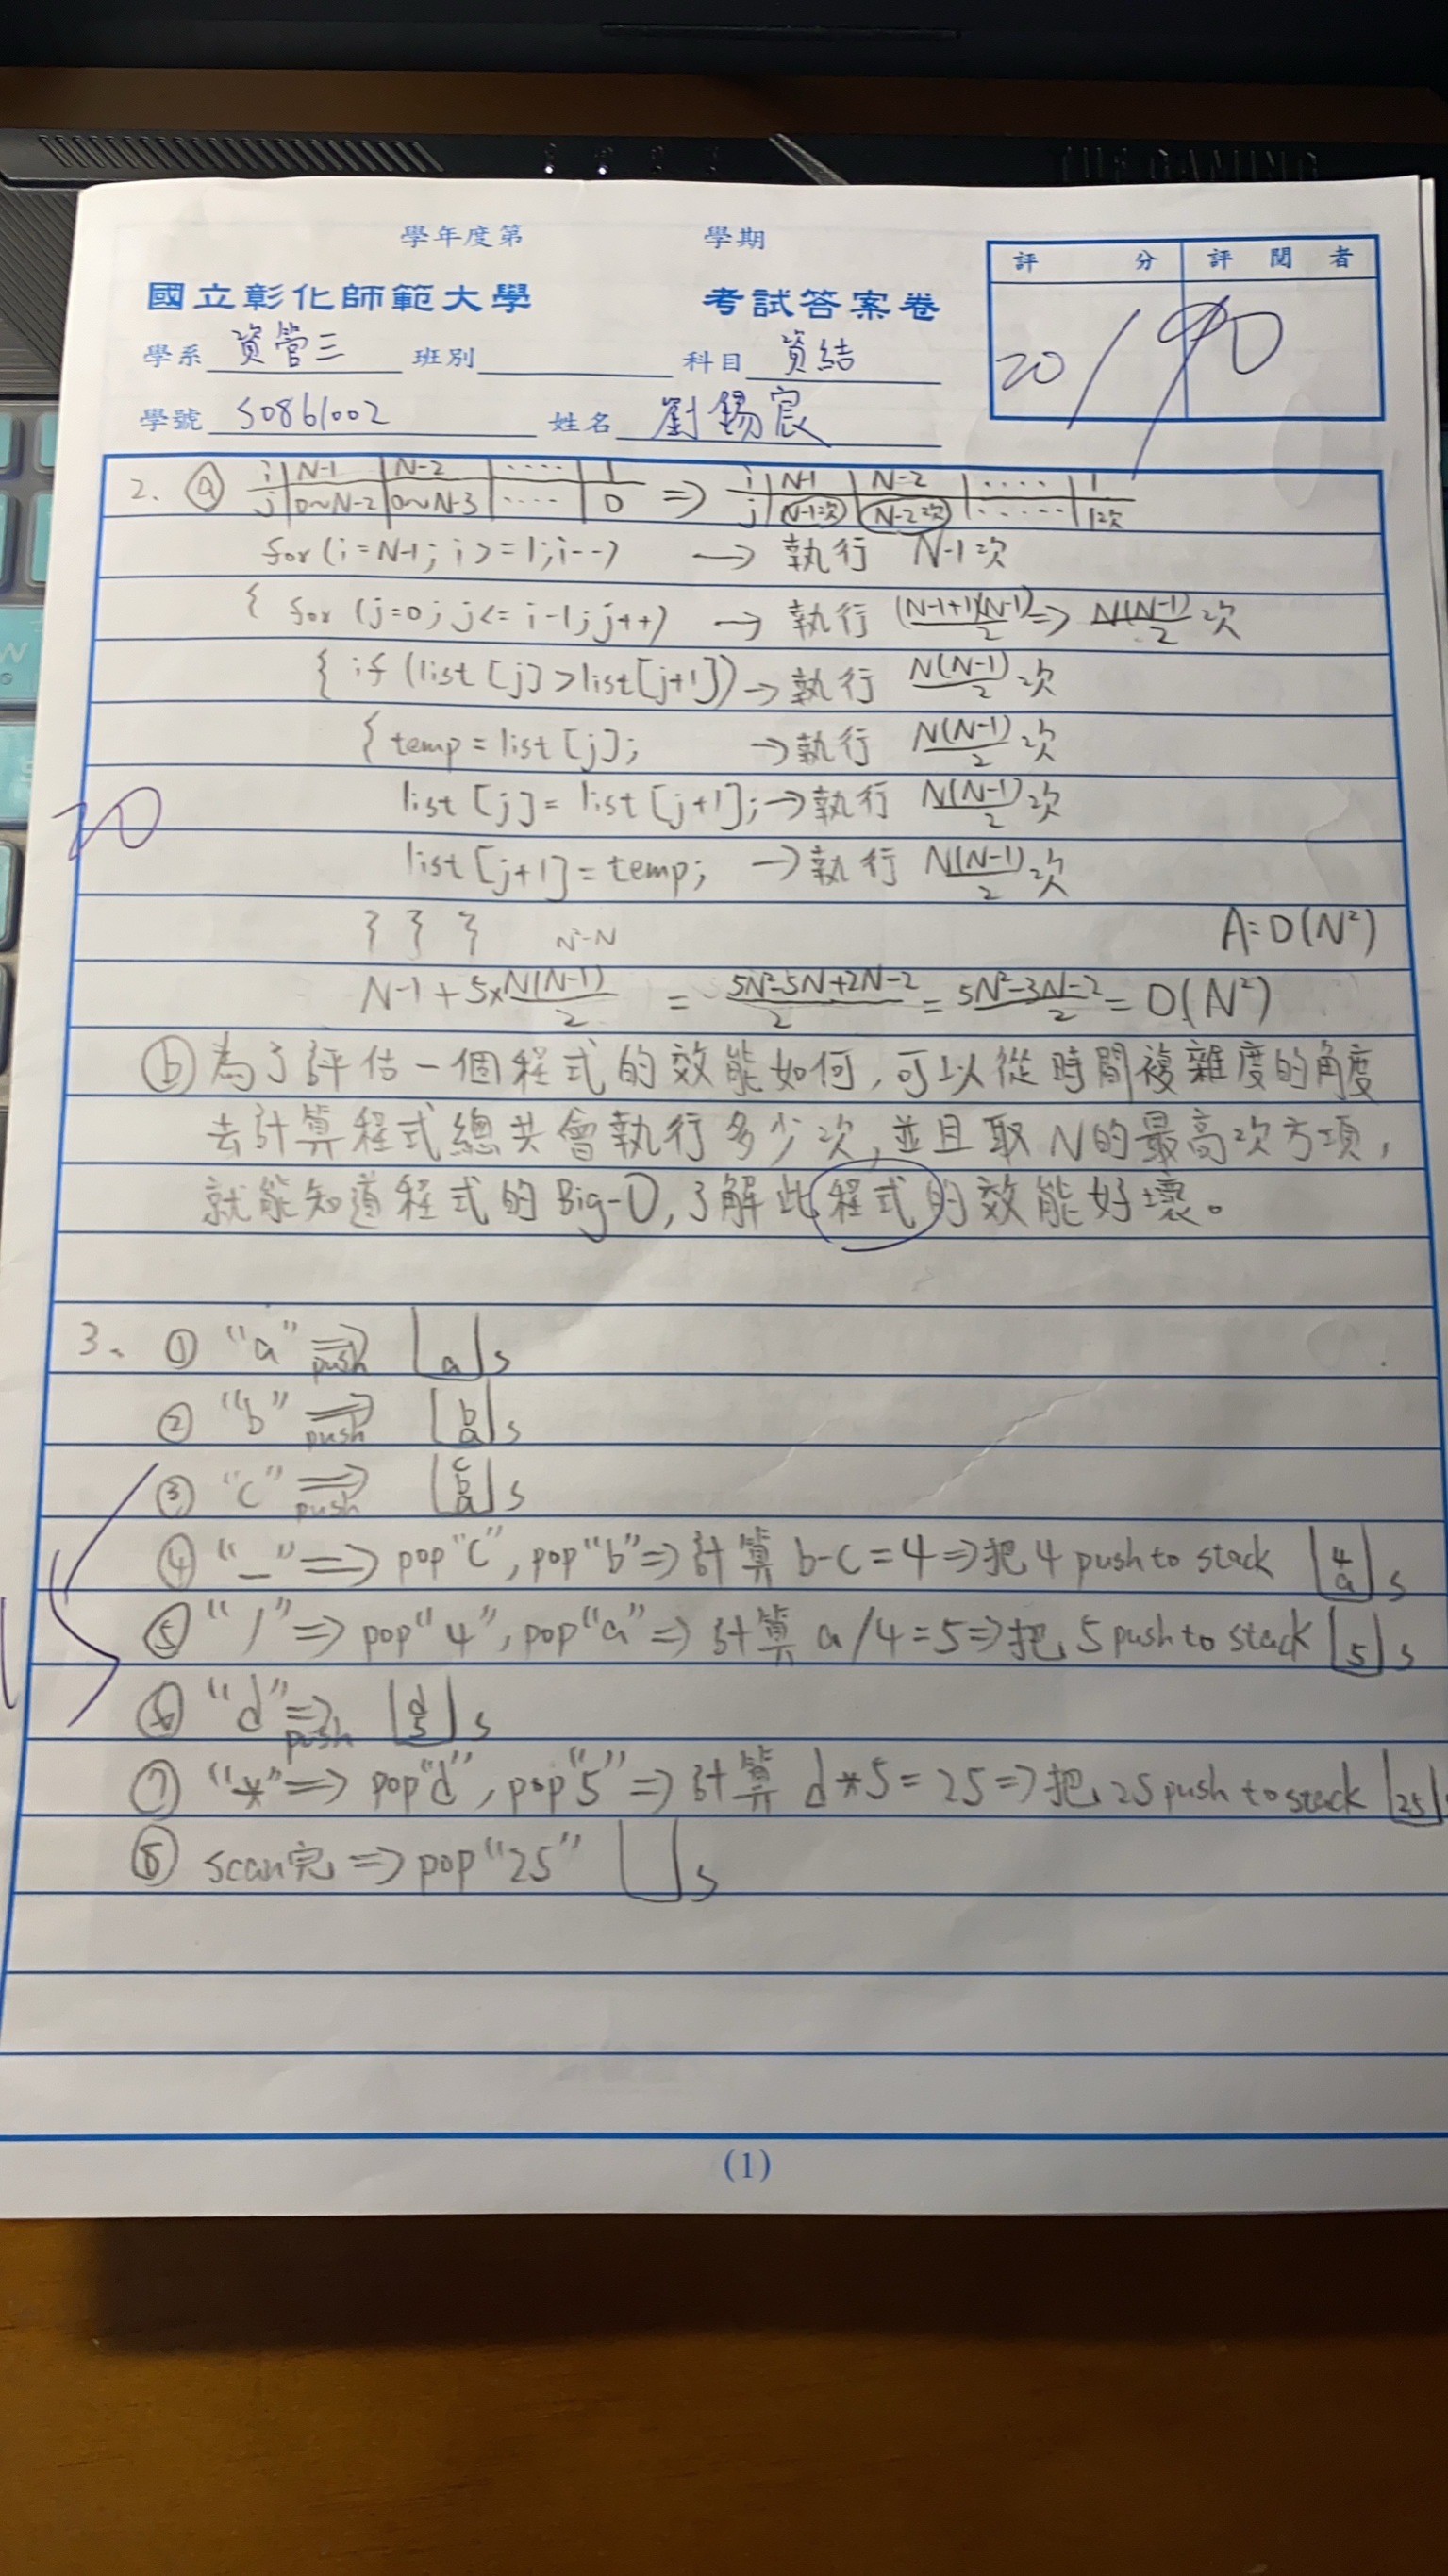 學年度第 學期
國立彰化師範大學 考試答案卷
評分 評閱者
20/90
學系 資管三 班別 科目 資結
學號 S0861002 姓名 劉錫宸
2. ⓐ i | N-1 | N-2 | ‥‥ | 1 ⇒ i | N-1 | N-2 | ‥‥ | 1
j | 0~N-2 | 0~N-3 | ‥‥ | 0 j | N-1次 | N-2次 | ‥‥ | 1次
for (i=N-1; i>=1; i--) → 執行 N-1次
{ for (j=0; j<=i-1; j++) → 執行 (N-1+1)(N-1)/2 ⇒ N(N-1)/2 次
{ if (list[j]>list[j+1]) → 執行 N(N-1)/2 次
{ temp = list[j]; → 執行 N(N-1)/2 次
list[j] = list[j+1]; → 執行 N(N-1)/2 次
20
list[j+1] = temp; → 執行 N(N-1)/2 次
} } } N²-N A=O(N²)
N-1+5×N(N-1)/2 = 5N²-5N+2N-2/2 = 5N²-3N-2/2 = O(N²)
ⓑ 為了評估一個程式的效能如何, 可以從時間複雜度的角度
去計算程式總共會執行多少次, 並且取N的最高次方項,
就能知道程式的Big-O, 了解此程式的效能好壞。
3、 ① "a" ⇒ push a s
② "b" ⇒ push b a s
③ "c" ⇒ push c b a s
④ "-" ⇒ pop "c", pop "b" ⇒ 計算 b-c=4 ⇒ 把 4 push to stack 4 a s
⑤ "/" ⇒ pop "4", pop "a" ⇒ 計算 a/4=5 ⇒ 把 5 push to stack 5 s
⑥ "d" ⇒ push d 5 s
⑦ "*" ⇒ pop "d", pop "5" ⇒ 計算 d*5=25 ⇒ 把 25 push to stack 25
⑧ scan完 ⇒ pop "25" s
(1)